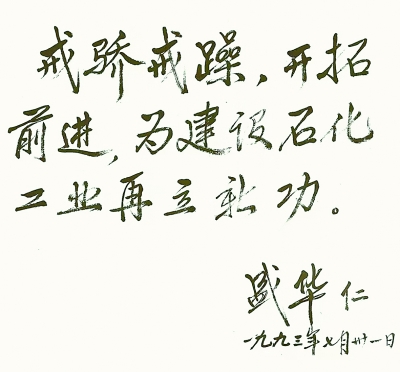 戒骄戒躁，开拓
前进，为建设石化
工业再立新功。
盛华仁
一九九三年七月卅一日